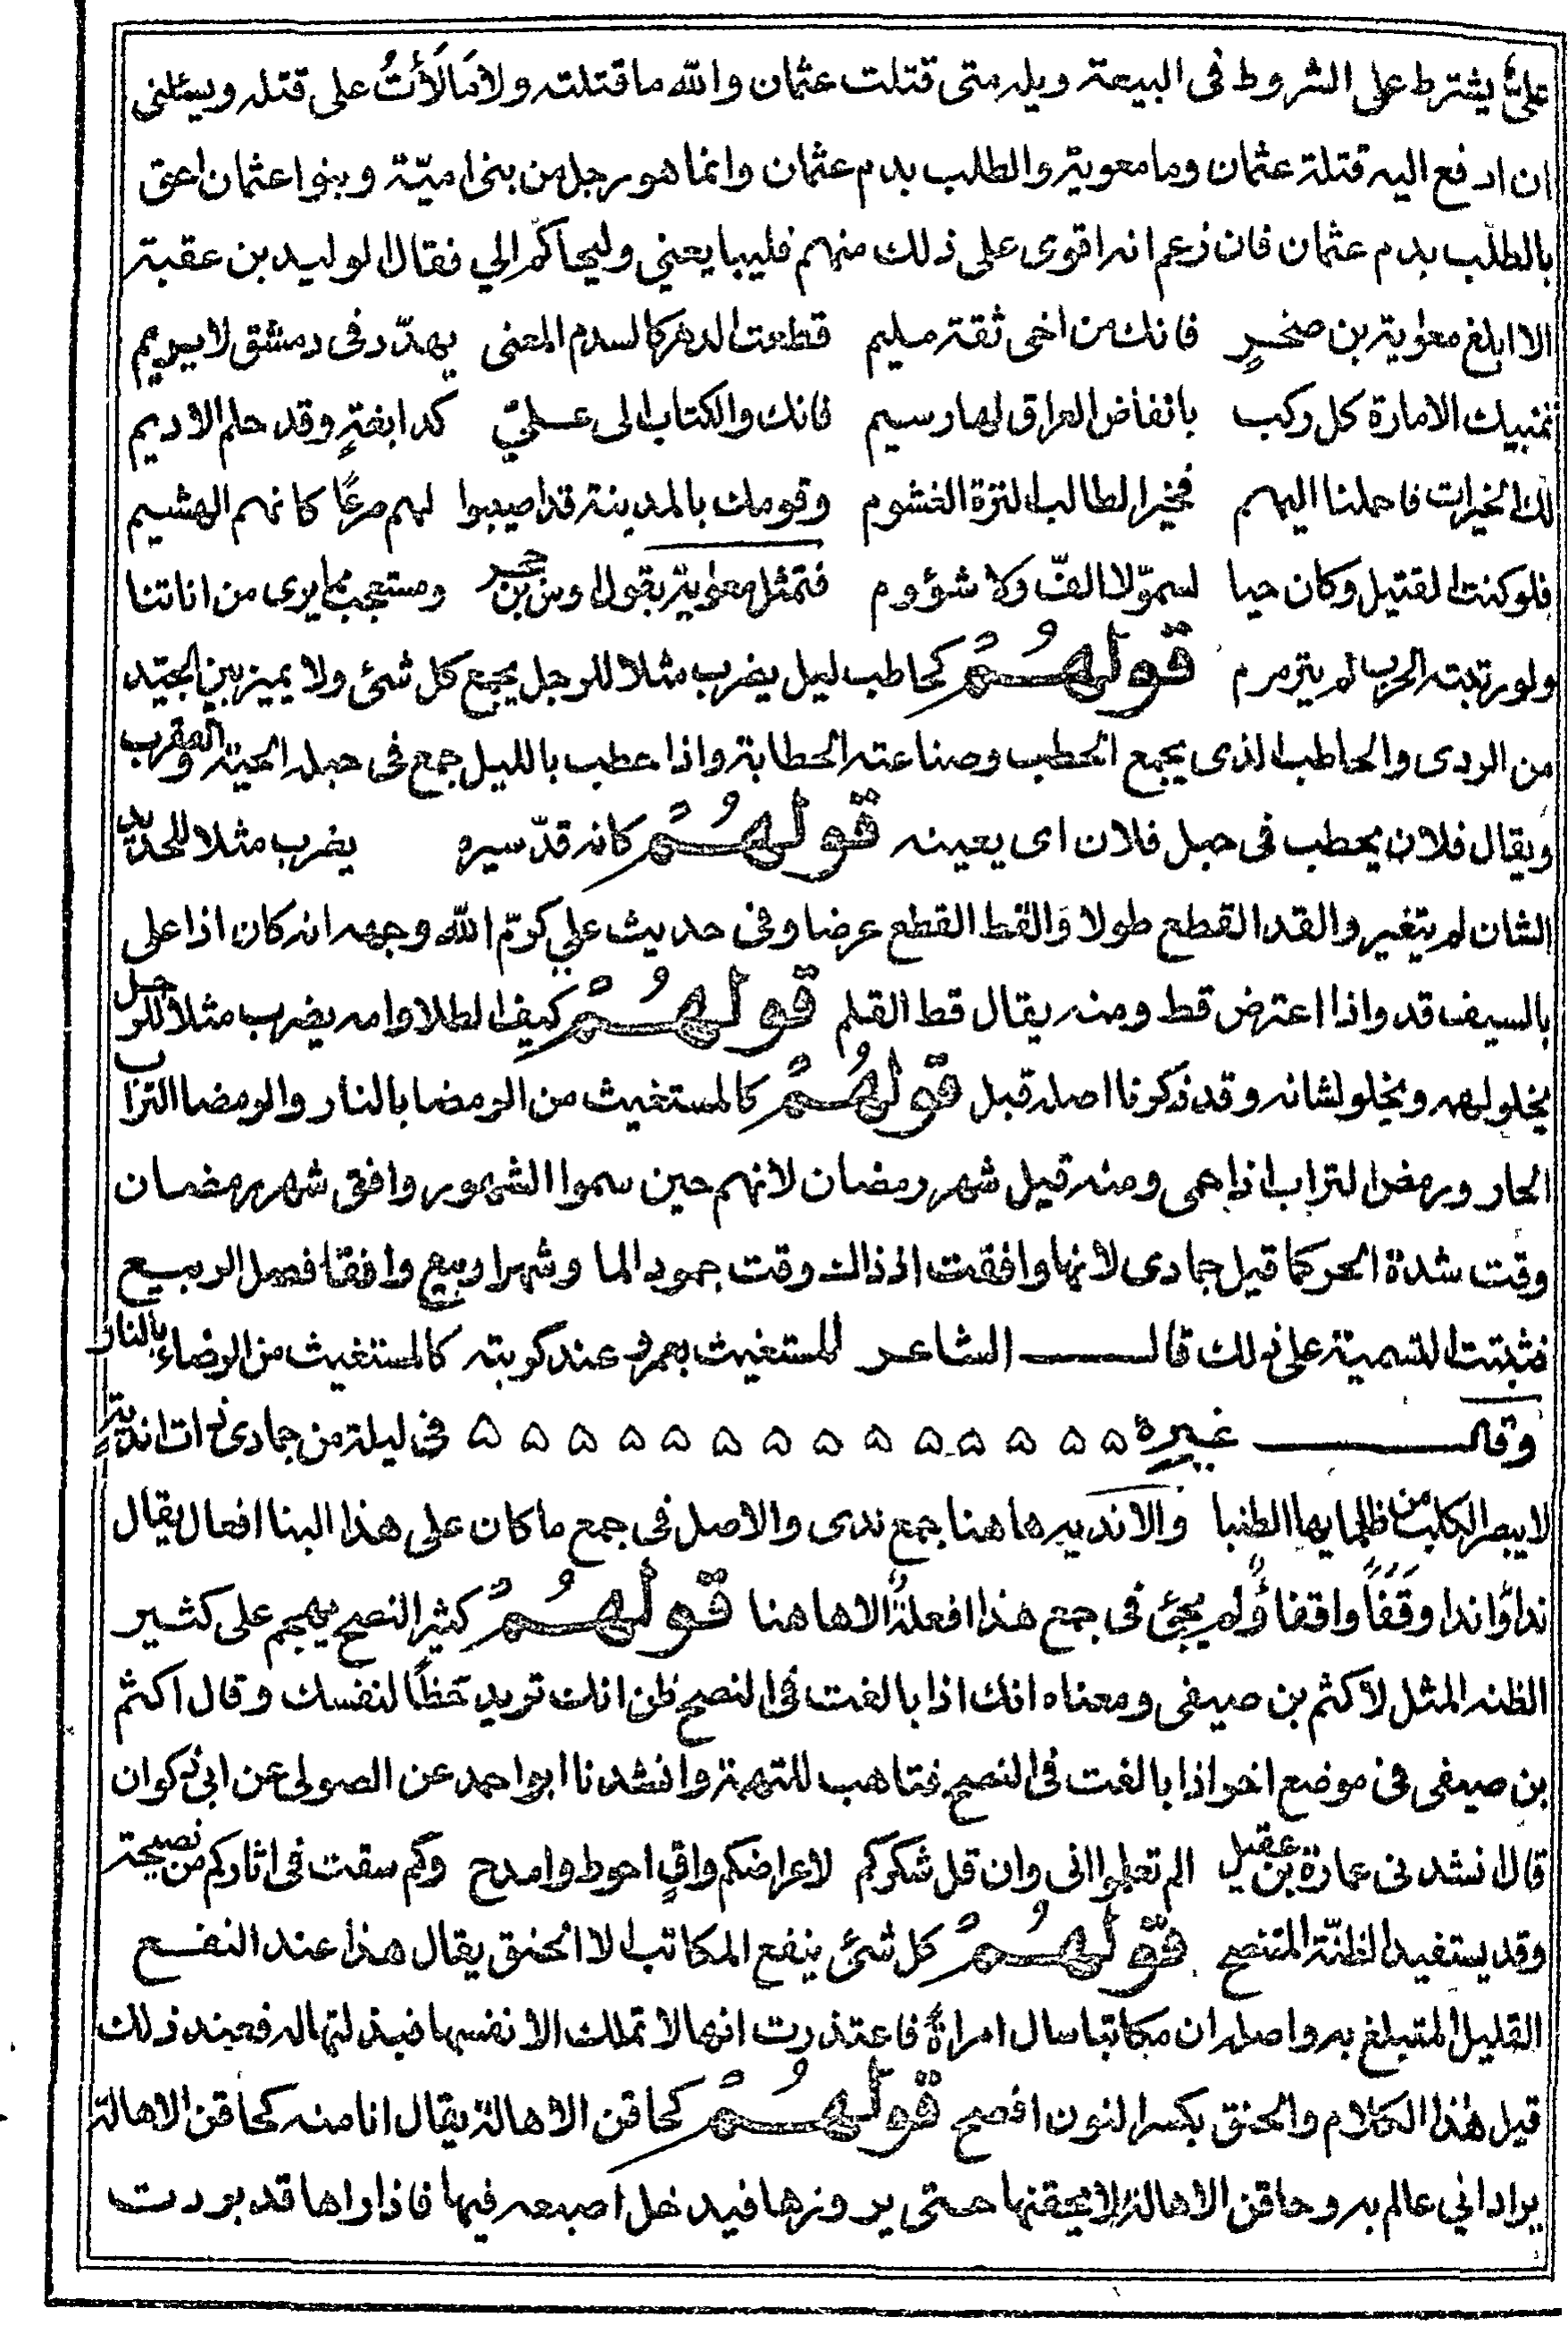 عليّ يشترط على الشروط فى البيعة ويله متى قتلت عثمان والله ما قتلته ولا مَالَأتُ على قتله ويسئلنى
ان ادفع اليه قتلة عثمان وما معوية والطلب بدم عثمان وانما هو رجل من بنى اميّة وبنوا عثمان احق
بالطلب بدم عثمان فان زعم انه اقوى على ذلك منهم فليبايعني وليحاكم الي فقال الوليد بن عقبة
الا ابلغ معوية بن صخرٍ فانك من اخى ثقة مليم قطعت الدهر كالسدم المعنى يهدّر فى دمشق لا يريم
تمنيك الامارة كل ركب بانفاض العراق لها رسيم فانك والكتاب الى عليّ كدابغةٍ وقد حلم الاديم
لك الخيرات فاحملنا اليهم فخير الطالب الترة الغشوم وقومك بالمدينة قد اصيبوا لهم صرعًا كانهم الهشيم
فلو كنت القتيل وكان حيا لسمّو لا الفّ ولا شؤوم فتمثل معوية بقول اوس بن حجر ومستعجب مما يرى من اناتنا
ولو زبنته الحرب لم يترمرم قولهُمْ كحاطب ليل يضرب مثلا للرجل يجمع كل شئ ولا يميز بين الجيّد
من الردى والحاطب الذى يجمع الحطب وصناعته الحطابة واذا حطب بالليل جمع فى حبله الحية والعقرب
ويقال فلان يحطب فى حبل فلان اى يعينه قولهُمْ كانه قدّ سيره يضرب مثلا للحديد
الشان لم يتغير والقد القطع طولا وَالقط القطع عرضا وفى حديث علي كرّم الله وجهه انه كان اذا على
بالسيف قد واذا اعترض قط ومنه يقال قط القلم قولهُمْ كيف الطلا وامه يضرب مثلا للرجل
يخلو لهمه ويخلو لشانه وقد ذكرنا اصله قبل قولهُمْ كالمستغيث من الرمضا بالنار والرمضا التراب
الحار ورمض التراب اذا حمى ومنه قيل شهر رمضان لانهم حين سموا الشهور وافق شهر رمضان
وقت شدة الحر كما قيل جمادى لانها وافقت اذ ذاك وقت جمود الما وشهرا ربيع وافقا فصل الربيع
فثبتت التسمية على ذلك قال الشاعر المستغيث بعمرٍو عند كربته كالمستغيث من الرمضاء بالنار
وقال غيره ۵ ۵ ۵ ۵ ۵ ۵ ۵ ۵ ۵ ۵ ۵ ۵ ۵ ۵ فى ليلة من جمادى ذات اندية
لا يبصر الكلب من ظلمايها الطنبا والاندية هاهنا جمع ندى والاصل فى جمع ما كان على هذا البنا افعال يقال
ندا وَّاندا وَقَفَاً واقفا وَّلم يجئ فى جمع هذا افعلة الا هاهنا قولهُمْ كثير النصح يهجم على كثير
الظنه المثل لاكثم بن صيفى ومعناه انك اذا بالغت فى النصح ظن انك تريد حَظًّا لنفسك وقال اكثم
بن صيفى فى موضع اخر اذا بالغت فى النصح فتاهب للتهمة وانشدنا ابو احمد عن الصولى عن ابى ذكوان
قال انشدنى عمارة بن عقيل الم تعلموا انى وان قل شكركم لاعراضكم واقٍ احوط وامدح وكم سقت فى اثاركم من نصيحة
وقد يستفيد الظنّة المتنصح قولهُمْ كل شئ ينفع المكاتب الا الخنق يقال هذا عند النفع
القليل المتبلغ به واصله ان مكاتبا سال امراةً فاعتذرت انها لا تملك الا نفسها فبذلتها له فعند ذلك
قيل هٰذا الكلام والخنق بكسر النون افصح قولهُمْ كحاقن الاهالة يقال انا منه كحاقن الاهالة
يراد اني عالم به وحاقن الاهالة لا يحقنها حتى يروزها فيدخل اصبعه فيها فاذا راها قد بردت